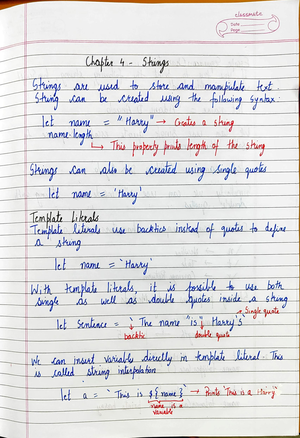 classmate
Date
Page
Chapter 4 - Strings
Strings are used to store and manipulate text.
String can be created using the following syntax
let name = "Harry" → Creates a string
name.length
→ This property prints length of the string
Strings can also be created using single quotes
let name = 'Harry'
Template Literals
Template literals use backtics instead of quotes to define
a string
let name = `Harry`
With template literals, it is possible to use both
single as well as double quotes inside a string
Single quote
let sentence = ` The name "is" Harry's`
backtic
double quote
We can insert variables directly in template literal. This
is called string interpolation
let a = `This is ${name}` → Prints 'This is a Harry'
name is a
variable